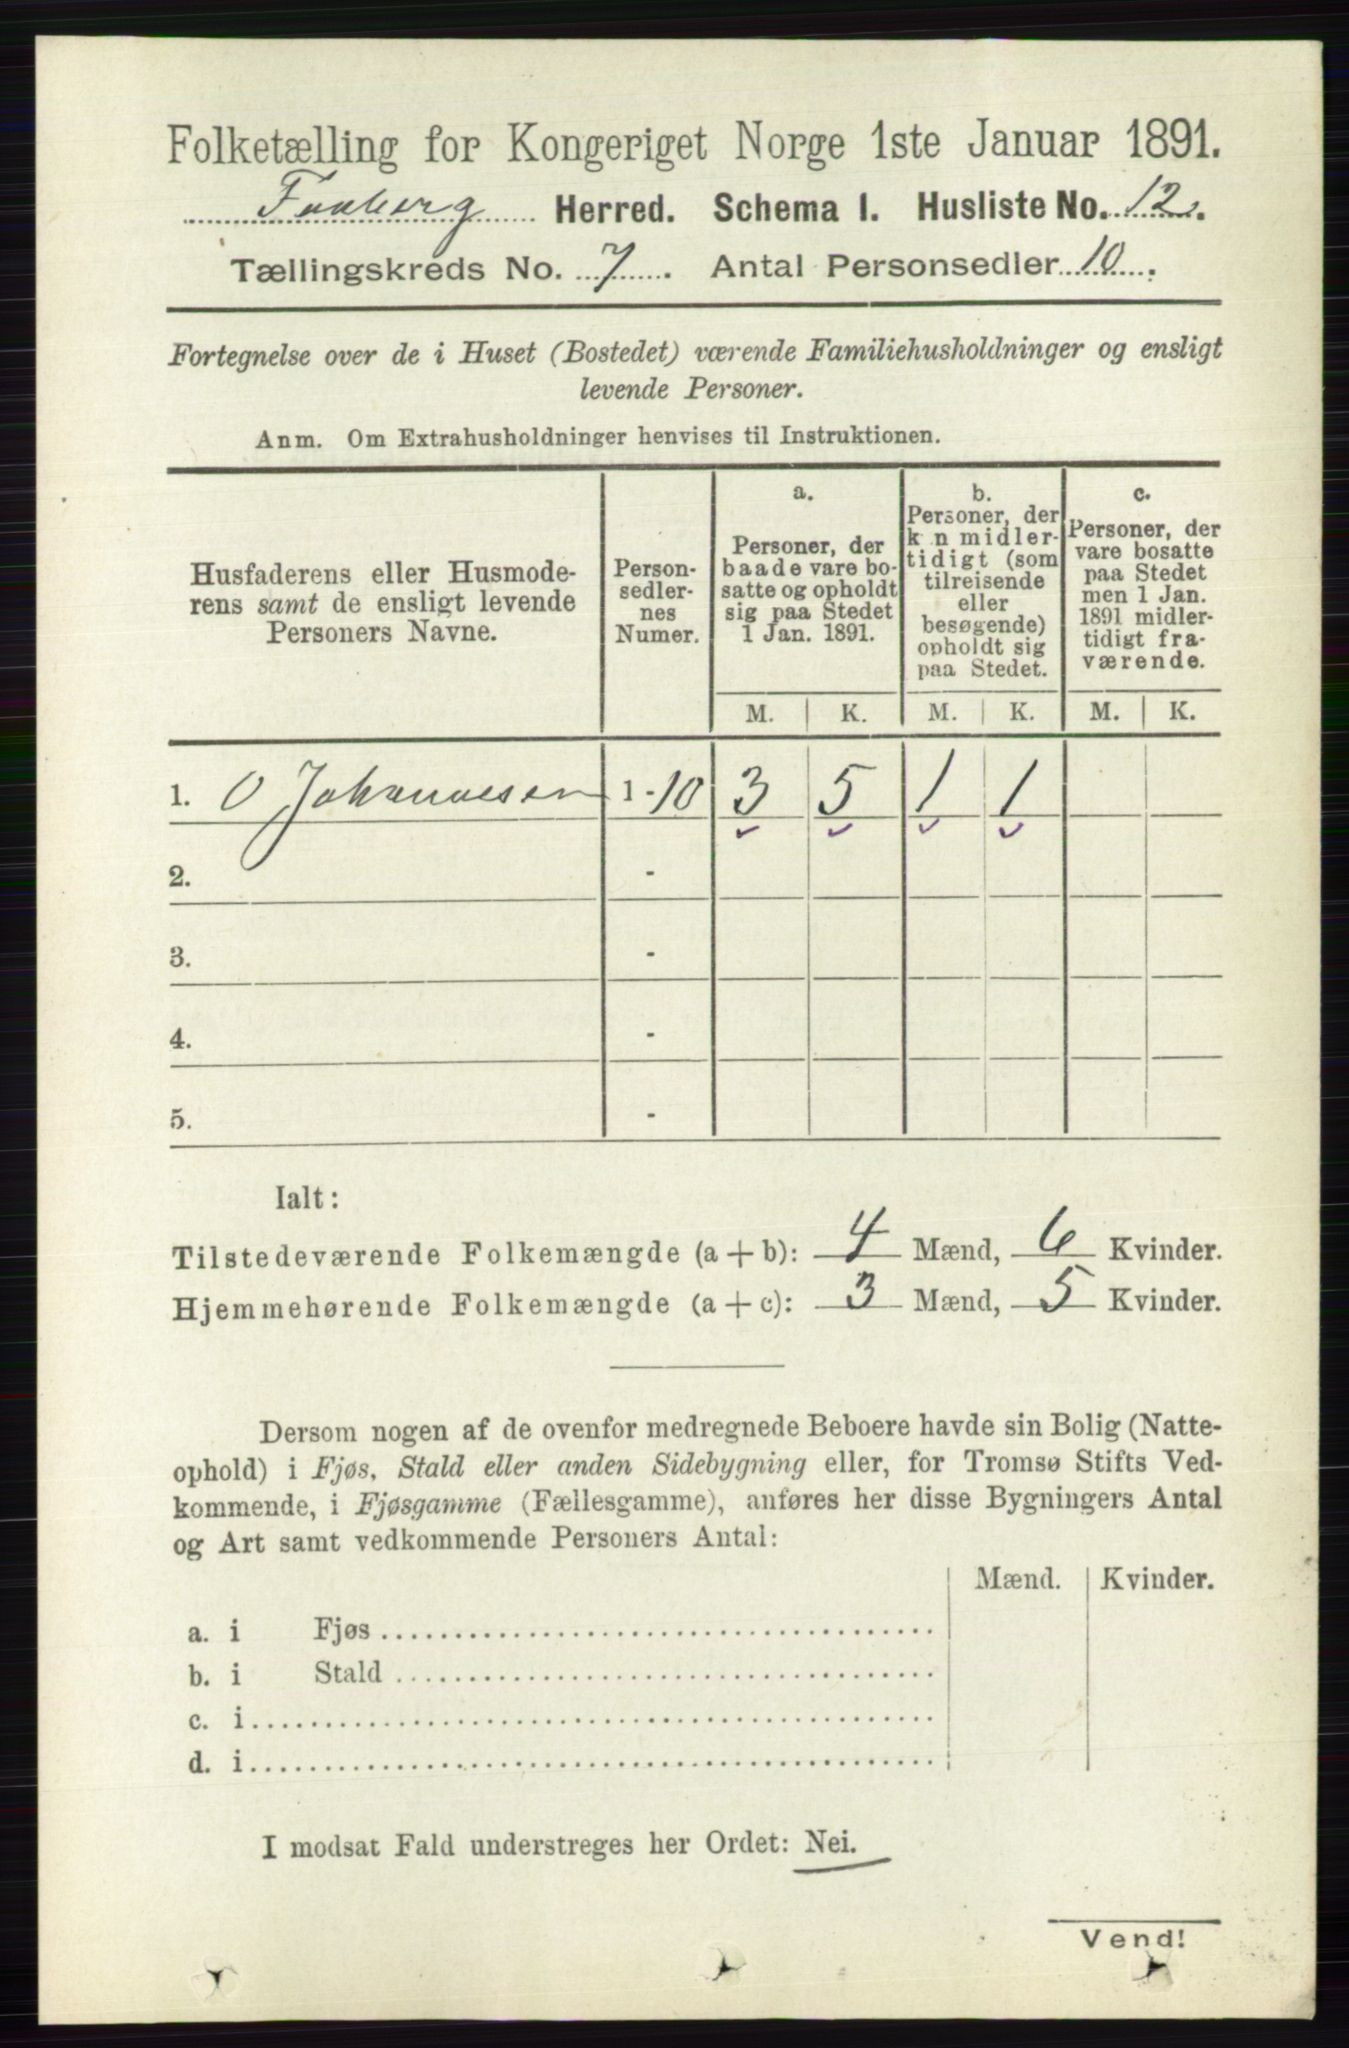 Folketælling for Kongeriget Norge 1ste Januar 1891.
Faaberg Herred. Schema I. Husliste No. 12.
Tællingskreds No. 7. Antal Personsedler 10.
Fortegnelse over de i Huset (Bostedet) værende Familiehusholdninger og ensligt
levende Personer.
Anm. Om Extrahusholdninger henvises til Instruktionen.
Husfaderens eller Husmode-
rens samt de ensligt levende
Personers Navne.
Person-
sedler-
nes
Numer.
a.
Personer, der
baade vare bo-
satte og opholdt
sig paa Stedet
1 Jan. 1891.
b.
Personer, der
k n midler-
tidigt (som
tilreisende
eller
besøgende)
opholdt sig
paa Stedet.
c.
Personer, der
vare bosatte
paa Stedet
men 1 Jan.
1891 midler-
tidigt fra-
værende.
M. K. M. K. M. K.
1. O Johannesen 1-10 3 5 1 1
2. -
3. -
4. -
5. -
Ialt:
Tilstedeværende Folkemængde (a + b): 4 Mænd, 6 Kvinder.
Hjemmehørende Folkemængde (a + c): 3 Mænd, 5 Kvinder.
Dersom nogen af de ovenfor medregnede Beboere havde sin Bolig (Natte-
ophold) i Fjøs, Stald eller anden Sidebygning eller, for Tromsø Stifts Ved-
kommende, i Fjøsgamme (Fællesgamme), anføres her disse Bygningers Antal
og Art samt vedkommende Personers Antal:
Mænd. Kvinder.
a. i Fjøs
b. i Stald
c. i
d. i
I modsat Fald understreges her Ordet: Nei.
Vend!